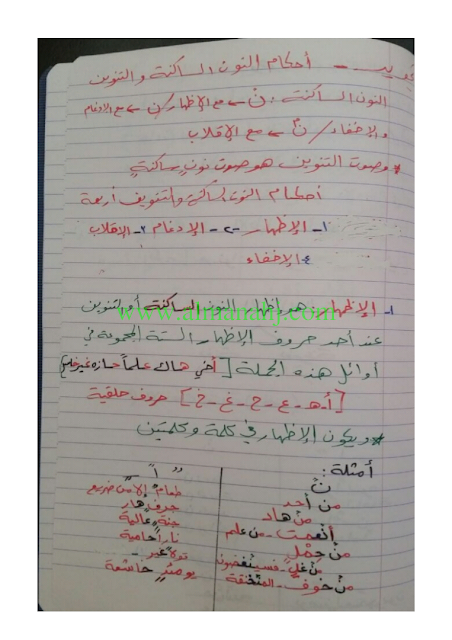 تجويد - أحكام النون الساكنة والتنوين
النون الساكنة : نْ ← مع الإظهار / ن ← مع الادغام
والإخفاء / نۢ ← مع الإقلاب
* وصوت التنوين هو صوت نون ساكنة
أحكام النون الساكنة والتنوين أربعة
١- الإظهار -٢- الإدغام ٣- الاقلاب
٤- الإخفاء
www.almanahj.com
١- الإظهار : هو إظهار النون الساكنة أو التنوين
عند أحد حروف الإظهار الستة المجموعة في
أوائل هذه الجملة [ أخي هاك علماً حازه غير خاسر ]
[ أ - هـ - ع - ح - غ - خ ] حروف حلقية
* ويكون الإظهار في كلمة وكلمتين
أمثلة :
نْ
من أحد
من هاد
أنعمت - من علم
من حمل
من غل - فسينغضون
من خوف - المنخنقة
طعام إلا من ضريع
جرف هار
جنة عالية
ناراً حامية
قولا غير -
يومئذ خاشعة